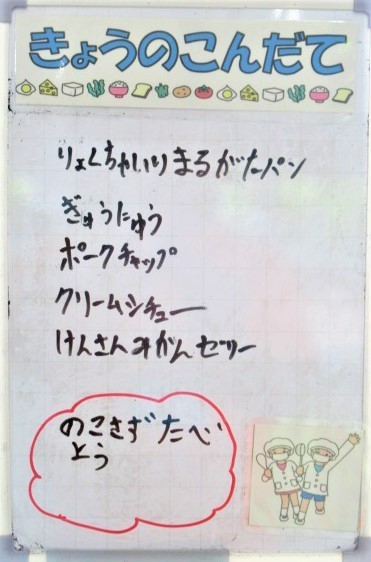 きょうのこんだて
りょくちゃいりまるがたパン
ぎゅうにゅう
ポークチャップ
クリームシチュー
けんさんみかんゼリー
のこさずたべ
とう